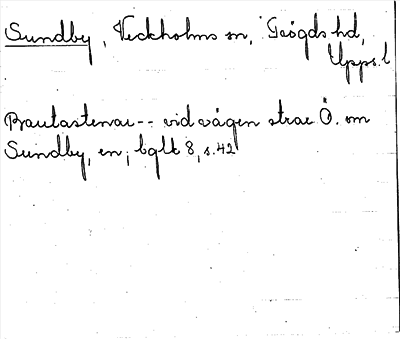 Sundby, Veckholms sn, Trögds hd,
Upps. l
Bautastenar -- vid vägen strax Ö. om
Sundby, en; bglt 8, s. 42